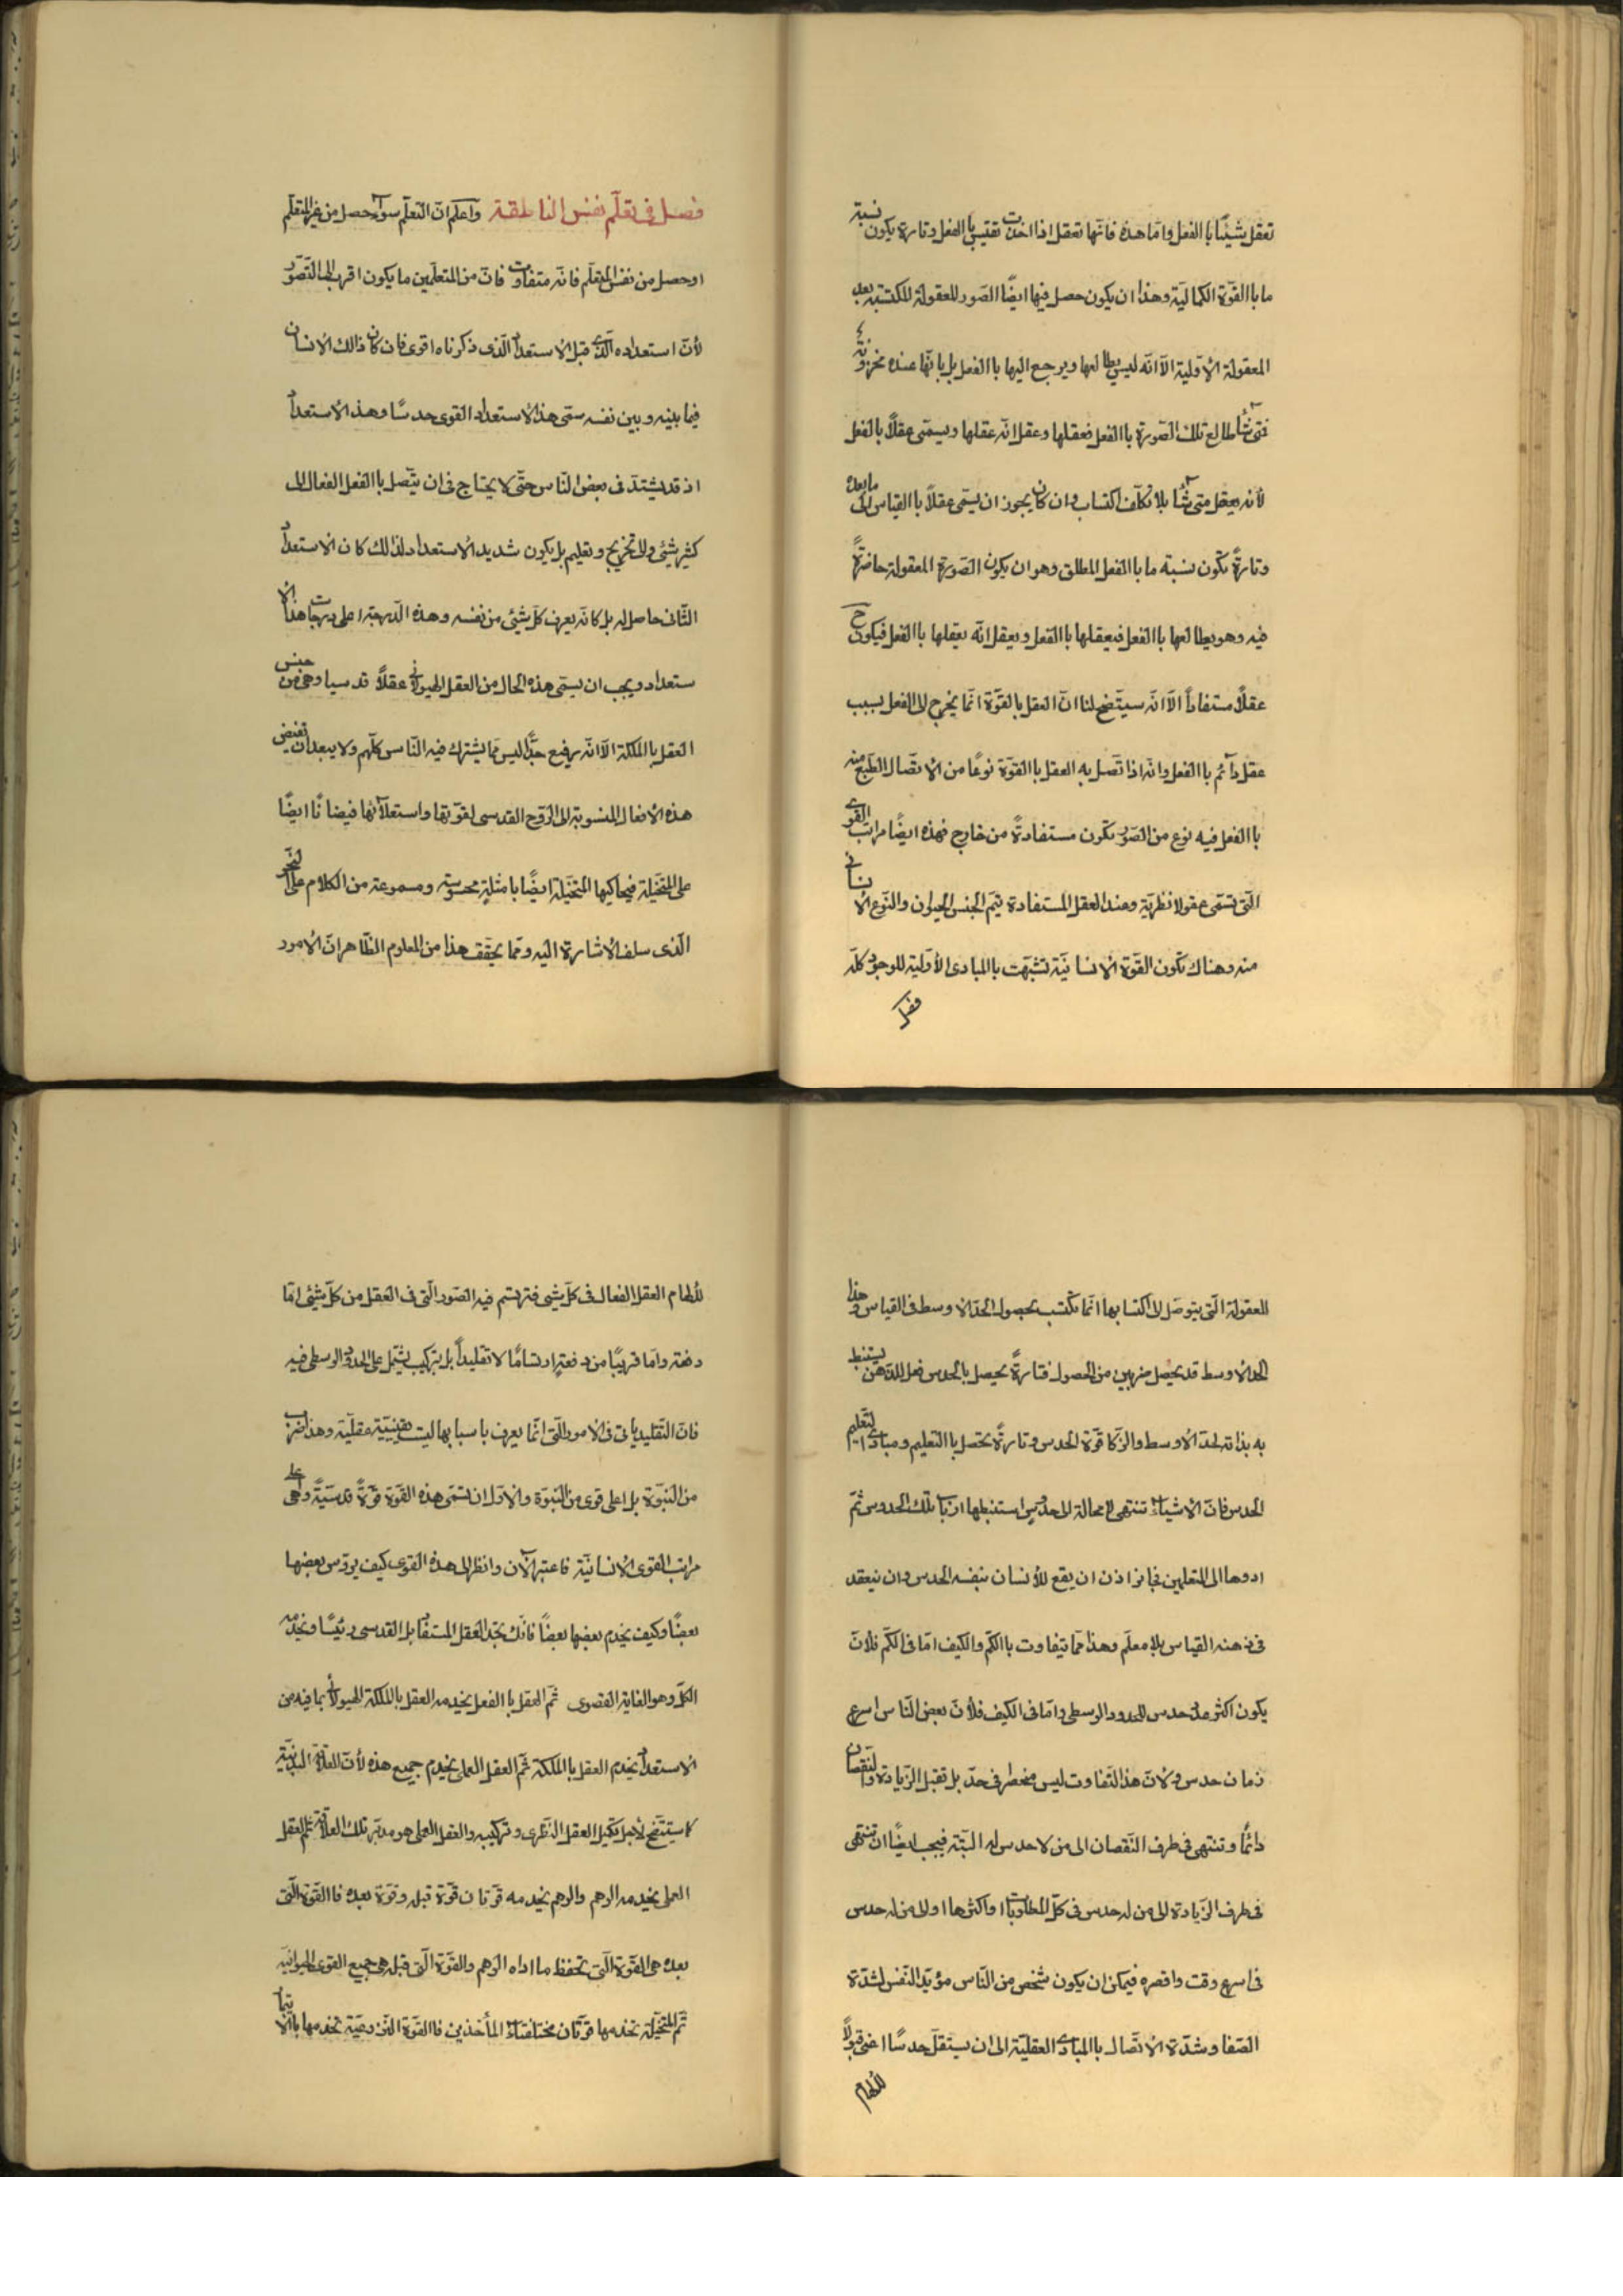 تعقل شيئًا باالفعل وامّا هذه فانّها تعقل اذا اخذت تقتيس باالفعل وتارة يكون نسبة
ما باالقوّة الكماليّة وهذا ان يكون حصل فيها ايضًا الصّور المعقولة المكتسبة بعد
المعقولة الأوّلية الّا انّه ليس يطالعها ويرجع اليها باالفعل بل بانّها عنده مخزونة
فمتى شآء طالع تلك الصّورة باالفعل فعقلها وعقل انّه عقلها ويسمّى عقلاً بالفعل
لأنّه يعقل متى شآء بلا تكلّف اكتساب وان كان يجوز ان يسمّى عقلاً باالقياس الى ما بعده
وتارةً تكون نسبة ما باالفعل المطلق وهو ان يكون الصّورة المعقولة حاضرةً
فيه وهو يطالعها باالفعل فيعقلها باالفعل ويعقل انّه يعقلها باالفعل فيكون ح
عقلاً مستفاداً الّا انّه سيتّضح لنا انّ العقل بالقوّة انّما يخرج الى الفعل بسبب
عقل دآئم باالفعل وانّه اذا تّصل به العقل باالقوّة نوعًا من الاتّصال انطبع منه
باالفعل فيه نوع من الصّور تكون مستفادةً من خارج فهذه ايضًا مراتب القوى
الّتى تسمّى عقولا نظريّة وعند العقل المستفادة يتمّ الجنس الحيوان والنّوع الأنسانى
منه وهناك تكون القوّة الأنسانيّة تشبّهت باالمبادى الأوّلية للوجود كلّه
فصل
فصل فى تعلّم نفس الناطقة واعلم انّ التّعلّم سوآء حصل من غير المتعلّم
اوحصل من نفس المتعلّم فانّه متفاوت فانّ من المتعلّمين ما يكون اقرب الى التّصوّر
لأنّ استعداده الّذى قبل الأستعداد الّذى ذكرناه اقوى فان كان ذالك الانسان
فيما بينه وبين نفسه سمّى هذ الأستعداد القوى حدسًا وهذ الأستعداد
اذ قد يشتدّ فى بعض النّاس حتّى لا يحتاج فى ان يتّصل باالفعل الفعال الى
كثير شيئى والى تخريج وتعليم بل يكون شديد الأستعداد لذالك كان الأستعداد
الثّانى حاصل له بل كانّه يعرف كلّ شيئى من نفسه وهذه الدّرجة اعلى درجات هذا الأ
ستعداد ويجب ان يسمّى هذه الحال من العقل الهيولانى عقلاً قد سيا وهى من جنس
العقل باالملكة الّا انّه رفيع جدًّا ليس ممّا يشترك فيه النّاس كلّهم ولا يبعد ان تفيض
هذه الأفعال المنسوبة الى الرّوح القدسى لقوّتها واستعلآئها فيضانًا ايضًا
على المتخيّلة فيحاكيها المتخيّلة ايضًا بامثلةٍ محسوسة ومسموعة من الكلام على النّحو
الّذى سلف الاشارة اليه وممّا يحقّق هذا من المعلوم الظّاهر انّ الأمور
المعقولة الّتى يتوصّل الى اكتسابها انّما تكتسب بحصول الحدّ الاوسط فى القياس وهذا
الحد الأوسط قد يحصل ضربين من الحصول فتارةً يحصل بالحدس فعل للذّهن يستنبط
به بذاته لحدّ الاوسط والزّكا قوّة الحدس وتارةً تحصل باالتعليم ومبادى التّعليم
الحدس فانّ الأشيآء تنتهى لا محالة الى حدوسٍ استنبطها ارباب تلك الحدوس ثمّ
ادوها الى المتعلمين فجايز اذن ان يقع للأنسان بنفسه الحدس وان ينعقد
فى ذهنه القياس بلا معلّم وهذا ممّا يتفاوت باالكمّ والكيف امّا فى الكمّ فلأنّ
يكون اكثر عدد حدس للحدود الوسطى وامّا فى الكيف فلأنّ بعض النّاس اسرع
زمان حدس ولأنّ هذ التّفاوت ليس منحصر فى حدّ بل تقبل الزّيادة والنّقصان
دائمًا وتنتهى فى طرف النّقصان الى من لا حدس له البتّة فيجب ايضًا ان تنتهى
فى طرف الزّيادة الى من له حدس فى كلّ المطلوبات او اكثرها اوالى من له حدس
فى اسرع وقت واقصره فيمكن ان يكون شخص من النّاس مؤيّد النّفس لشدّة
الصّفا وشدّة الأتّصال باالمبادى العقليّة الى ان يستقلّ حدسًا اعنى قبولاً
للألهام
للألهام العقل الفعال فى كلّ شيى فترتسم فيه الصّور الّتى فى العقل من كلّ شيئى امّا
دفعة وامّا قريبًا من دفعةٍ ارتسامًا لا تقليداً بل بتركيب يشتمل على الحدود الوسطى فيه
فانّ التّقليد يأتى فى الأمور الّتى انّما يعرف باسبابها ليت يقينيّة عقليّة وهذ ضرب
من النّبوّة بل اعلى قوى من النّبوّة والاول ان تسمّى هذه القوّة قوّةً قدسيّةً وهى اعلى
مراتب القوى الأنسانيّة فاعتبر الآن وانظر الى هذه القوى كيف يروس بعضها
بعضًا وكيف يخدم بعضها بعضاً فانّك تجد العقل المستفاد بل القدسى رئيسًا ويخدمه
الكلّ وهو الغاية القصوى ثمّ العقل باالفعل يخدمه العقل باالملكة الهيولانى بما فيه من
الاستعداد يخدم العقل باالملكة ثمّ العقل العملى يخدم جميع هذه لأنّ العلاقة البدنيّة
كما سيتّضح لأجل تكميل العقل النّظرى وتزكيبه والعقل العملى هو مدبّر تلك العلاقة ثم العقل
العملى يخدمه الوهم والوهم يخدمه قوّتان قوّة قبله وقوّة بعده فاالقوّة الّتى
بعده هى القوّة الّتى تحفظ ما اداه الوهم والقوّة الّتى قبله هى جميع القوى الحيوانيّة
ثمّ المتخيّلة تخدمها قوّتان مختلفتا المأخذين فاالقوّة النّزوعيّة تخدمها باالأتما